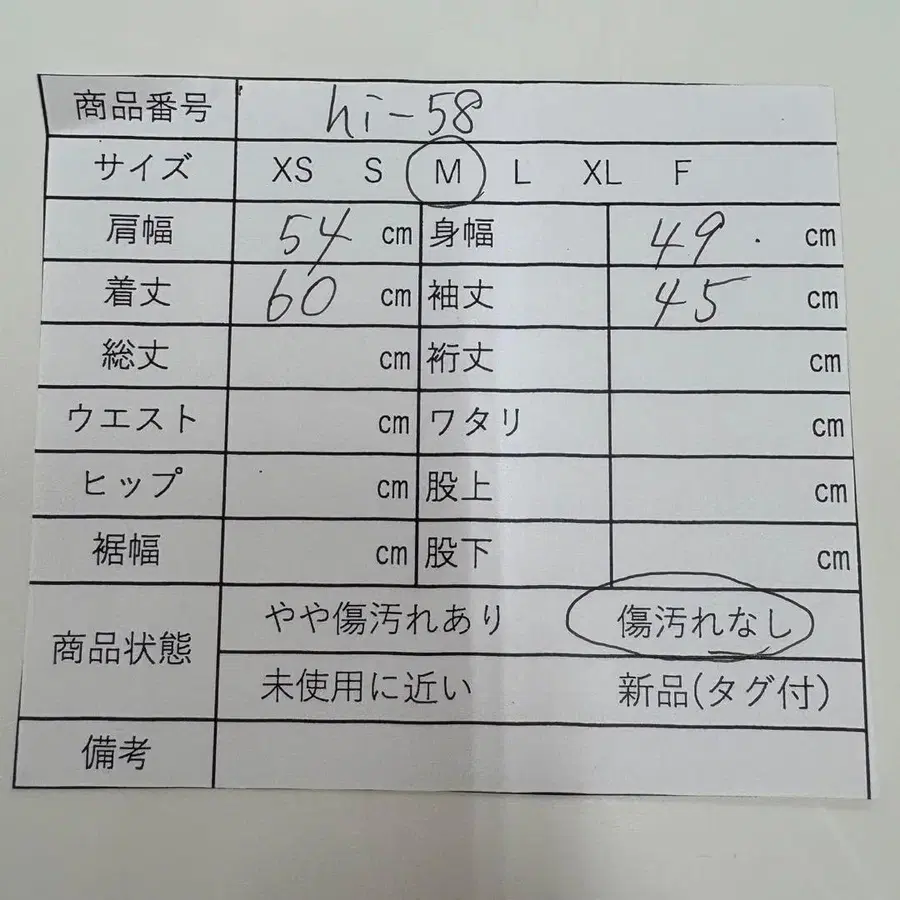 商品番号 hi-58
サイズ XS S M L XL F
肩幅 54 cm 身幅 49. cm
着丈 60 cm 袖丈 45 cm
総丈 cm 裄丈 cm
ウエスト cm ワタリ cm
ヒップ cm 股上 cm
裾幅 cm 股下 cm
商品状態 やや傷汚れあり 傷汚れなし
未使用に近い 新品(タグ付)
備考